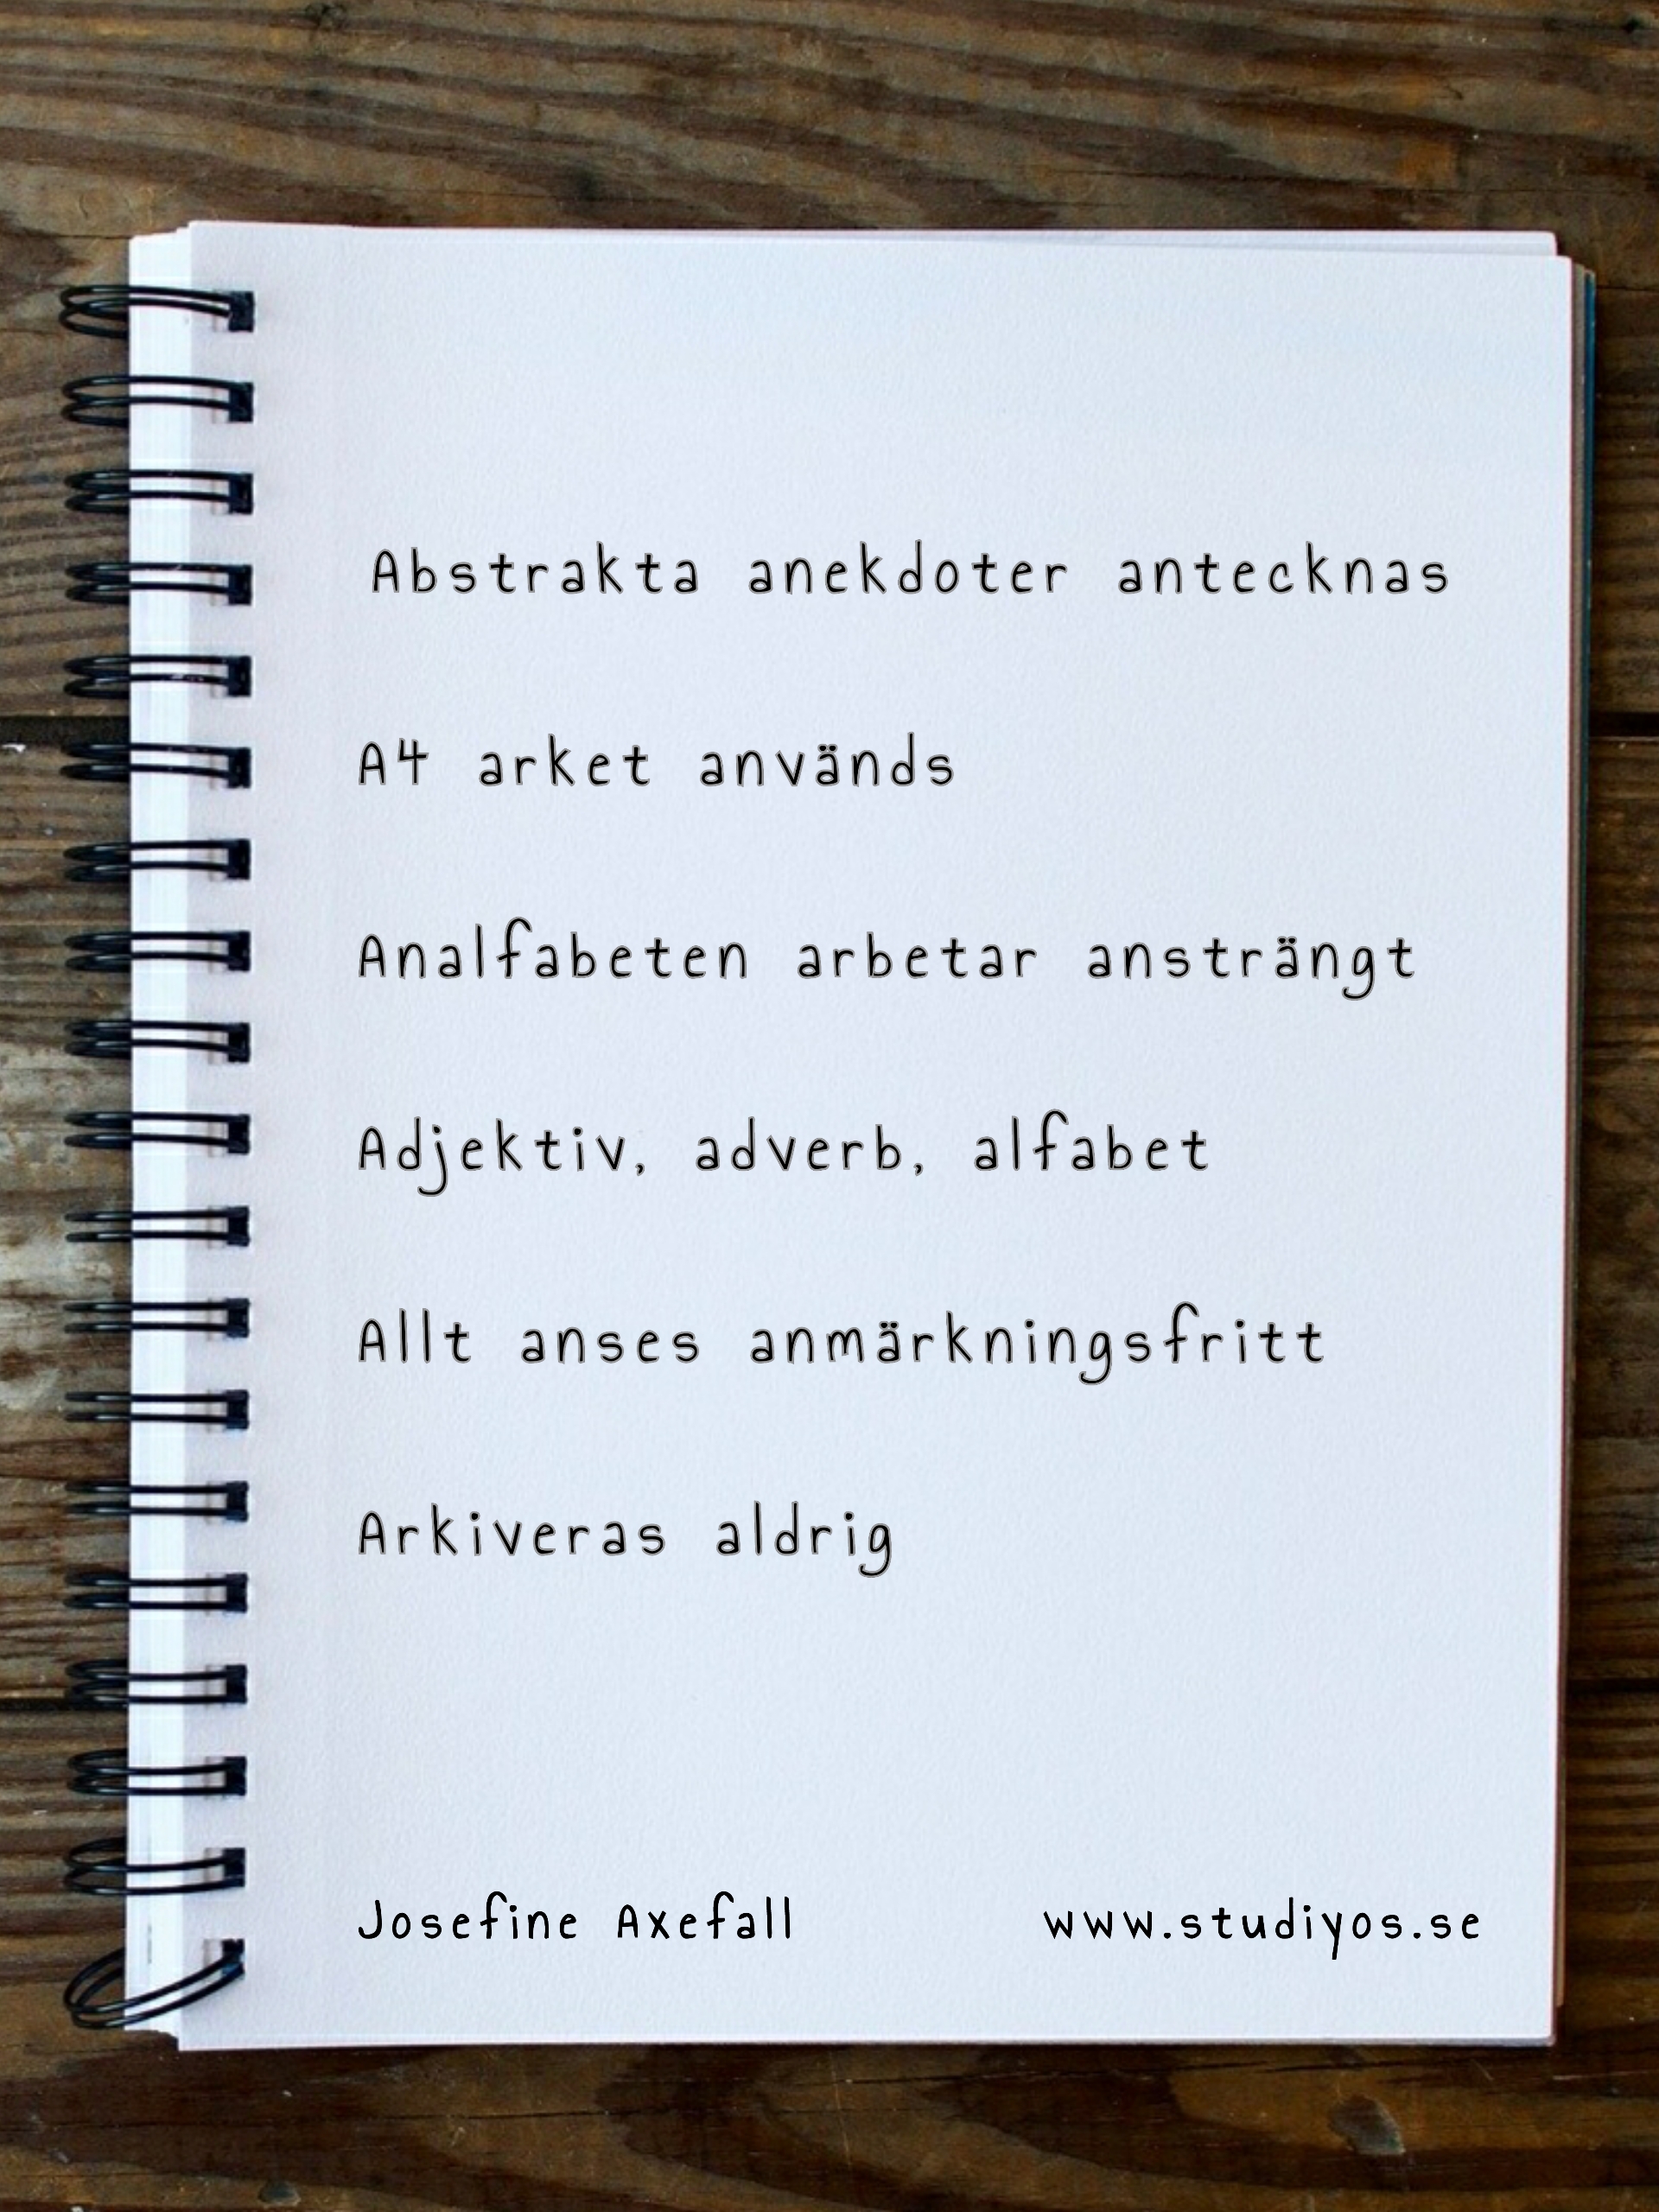 Abstrakta anekdoter antecknas
A4 arket används
Analfabeten arbetar ansträngt
Adjektiv, adverb, alfabet
Allt anses anmärkningsfritt
Arkiveras aldrig
Josefine Axefall www.studiyos.se